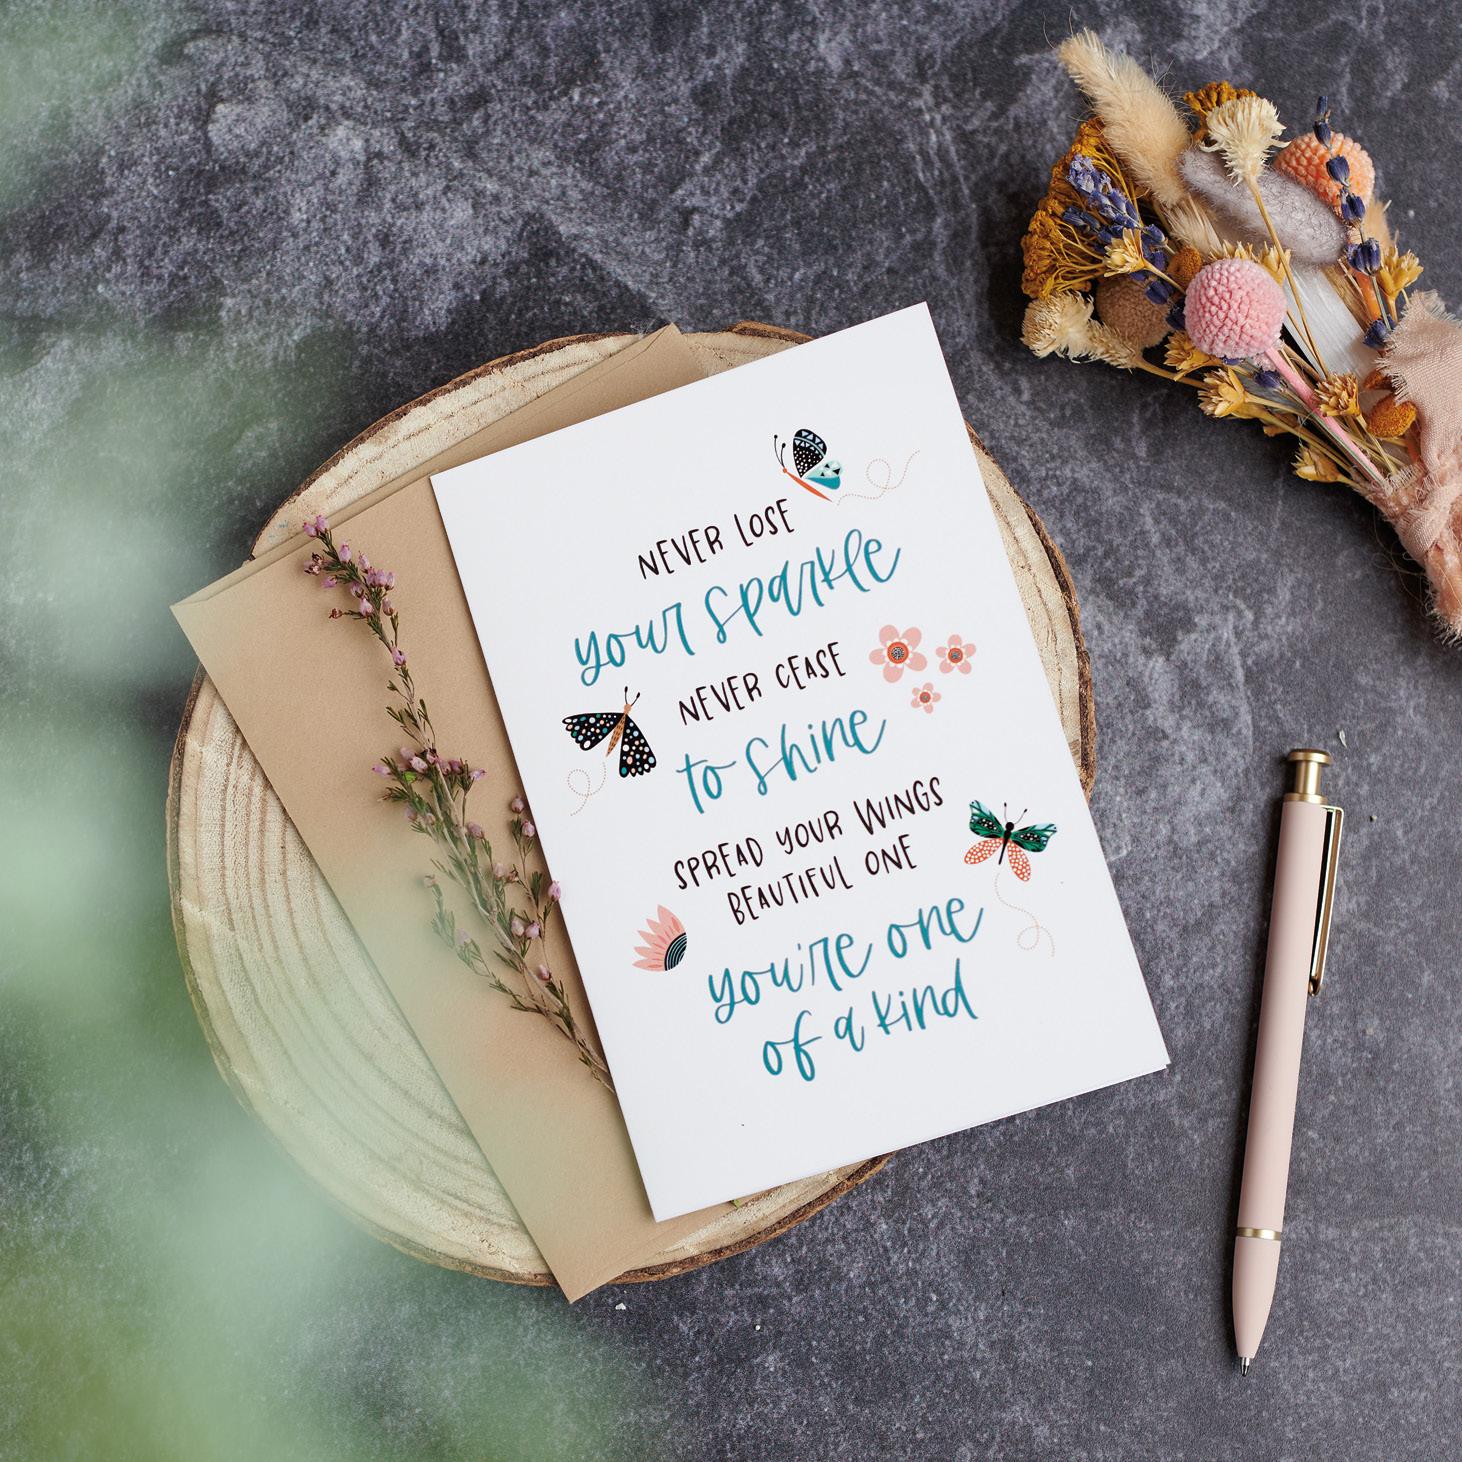 NEVER LOSE
your sparkle
NEVER CEASE
to shine
SPREAD YOUR WINGS
BEAUTIFUL ONE
you're one
of a kind